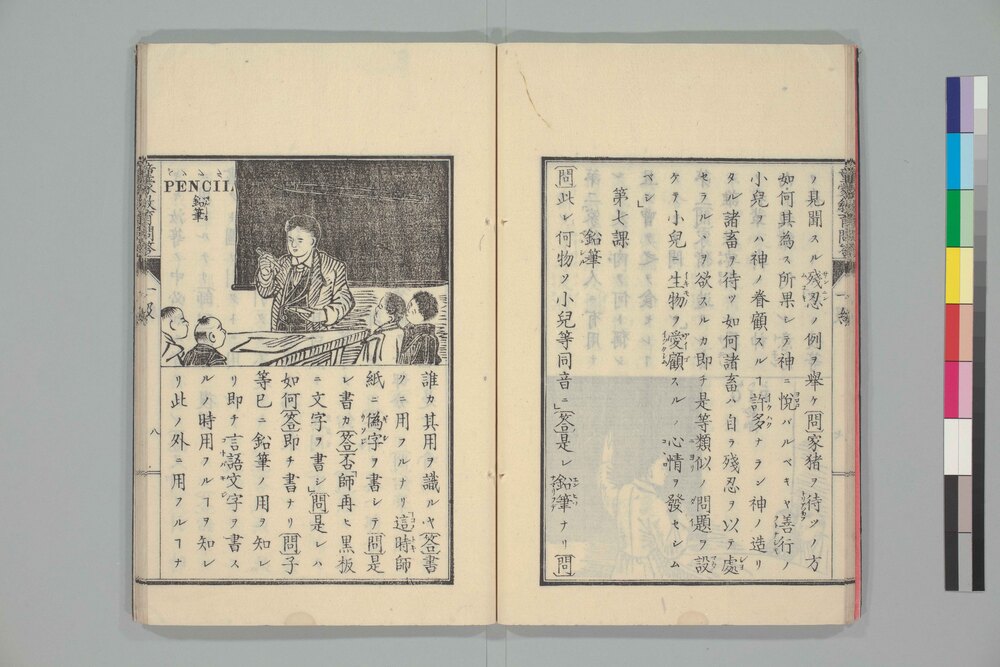 ヲ見聞スル殘忍ノ例ヲ擧ケ問家猪ヲ待ツノ方
如何其為ス所果シテ神ニ悅バルベキヤ善行ノ
小兒ヲハ神ノ眷顧スルヿ許多ナラン神ノ造リ
タル諸畜ヲ待ツ如何諸畜ハ自ラ殘忍ヲ以テ處
セラルヽヲ欲スルカ即チ是等類似ノ問題ヲ設
ケテ小兒ノ生物ヲ愛顧スルノ心情ヲ發セシム
ベシ
第七課 鉛筆
問此レ何物ソ小兒等同音ニ答是レ鉛筆ナリ問
一級
PENCIL
鉛筆
誰カ其用ヲ識ルヤ答書
クニ用フルナリ這時師
紙ニ偽字ヲ書シテ問是
レ書カ答否師再ヒ黒板
ニ文字ヲ書シ問是レハ
如何答即チ書ナリ問子
等已ニ鉛筆ノ用ヲ知レ
リ即チ言語文字ヲ書ス
ルノ時用フルヿヲ知レ
リ此ノ外ニ用フルヿナ
一級
八